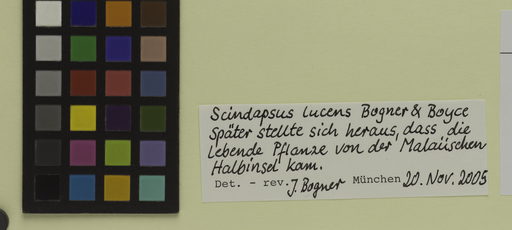 Scindapsus lucens Bogner & Boyce
Später stellte sich heraus, dass die
lebende Pflanze von der Malaiischen
Halbinsel kam.
Det. - rev. J. Bogner München 20. Nov. 2005